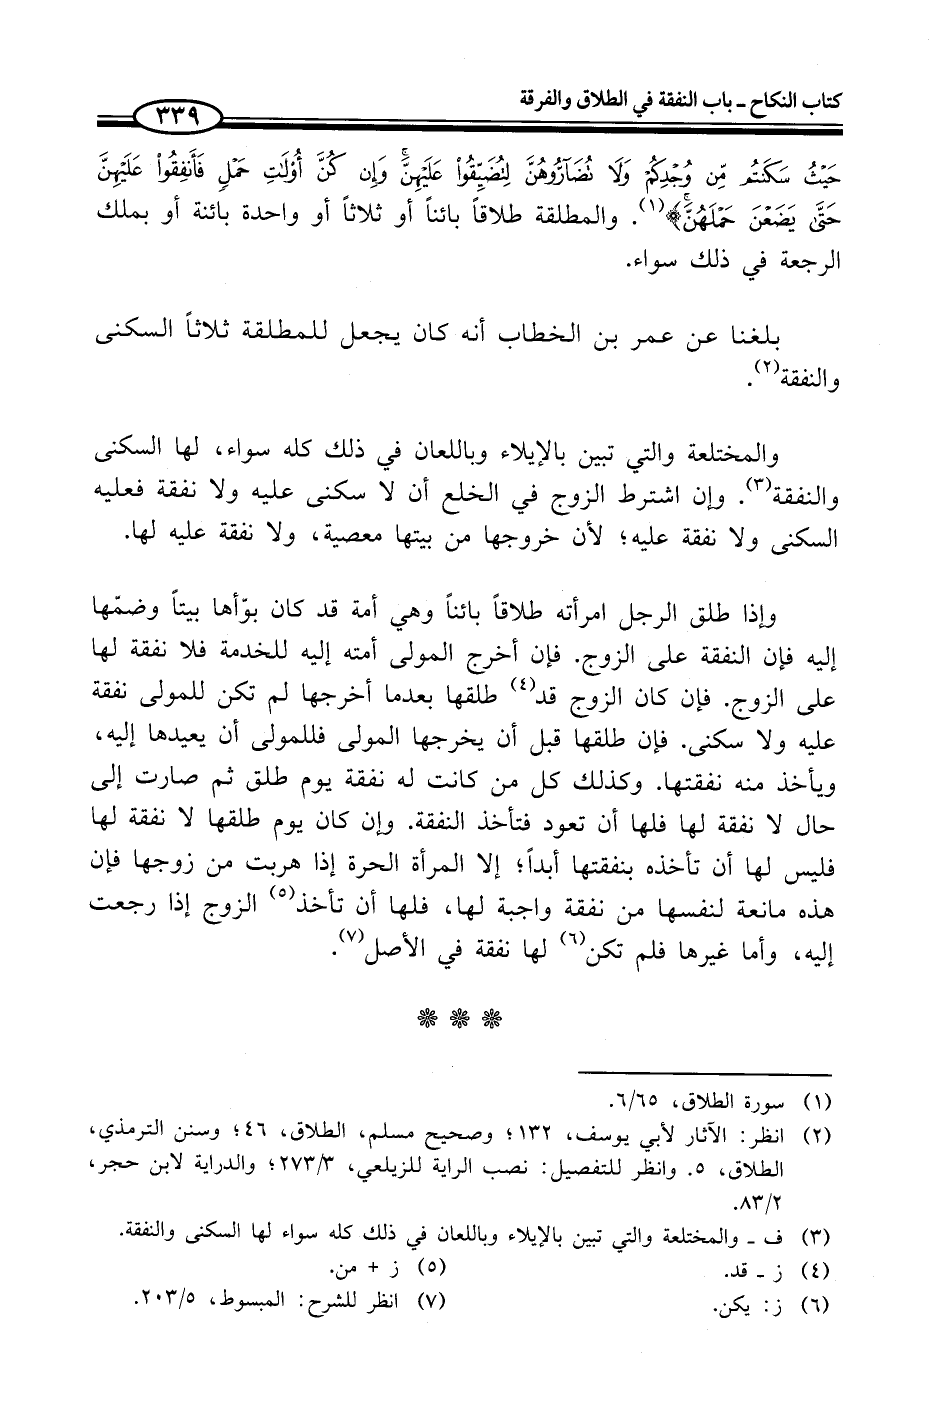 كتاب النكاح - باب النفقة في الطلاق والفرقة
٣٣٩
حَيْثُ سَكَنتُم مِّن وُجْدِكُمْ وَلَا تُضَآرُّوهُنَّ لِتُضَيِّقُوا۟ عَلَيْهِنَّ ۚ وَإِن كُنَّ أُو۟لَٰتِ حَمْلٍ فَأَنفِقُوا۟ عَلَيْهِنَّ
حَتَّىٰ يَضَعْنَ حَمْلَهُنَّ ۚ﴾(١). والمطلقة طلاقاً بائناً أو ثلاثاً أو واحدة بائنة أو بملك
الرجعة في ذلك سواء.
بلغنا عن عمر بن الخطاب أنه كان يجعل للمطلقة ثلاثاً السكنى
والنفقة(٢).
والمختلعة والتي تبين بالإيلاء وباللعان في ذلك كله سواء، لها السكنى
والنفقة(٣). وإن اشترط الزوج في الخلع أن لا سكنى عليه ولا نفقة فعليه
السكنى ولا نفقة عليه؛ لأن خروجها من بيتها معصية، ولا نفقة عليه لها.
وإذا طلق الرجل امرأته طلاقاً بائناً وهي أمة قد كان بوّأها بيتاً وضمّها
إليه فإن النفقة على الزوج. فإن أخرج المولى أمته إليه للخدمة فلا نفقة لها
على الزوج. فإن كان الزوج قد(٤) طلقها بعدما أخرجها لم تكن للمولى نفقة
عليه ولا سكنى. فإن طلقها قبل أن يخرجها المولى فللمولى أن يعيدها إليه،
ويأخذ منه نفقتها. وكذلك كل من كانت له نفقة يوم طلق ثم صارت إلى
حال لا نفقة لها فلها أن تعود فتأخذ النفقة. وإن كان يوم طلقها لا نفقة لها
فليس لها أن تأخذه بنفقتها أبداً؛ إلا المرأة الحرة إذا هربت من زوجها فإن
هذه مانعة لنفسها من نفقة واجبة لها، فلها أن تأخذ(٥) الزوج إذا رجعت
إليه، وأما غيرها فلم تكن(٦) لها نفقة في الأصل(٧).
(١) سورة الطلاق، ٦/٦٥.
(٢) انظر: الآثار لأبي يوسف، ١٣٢؛ وصحيح مسلم، الطلاق، ٤٦؛ وسنن الترمذي،
الطلاق، ٥. وانظر للتفصيل: نصب الراية للزيلعي، ٢٧٣/٣؛ والدراية لابن حجر،
٨٣/٢.
(٣) ف - والمختلعة والتي تبين بالإيلاء وباللعان في ذلك كله سواء لها السكنى والنفقة.
(٤) ز - قد. (٥) ز + من.
(٦) ز: يكن. (٧) انظر للشرح: المبسوط، ٢٠٣/٥.